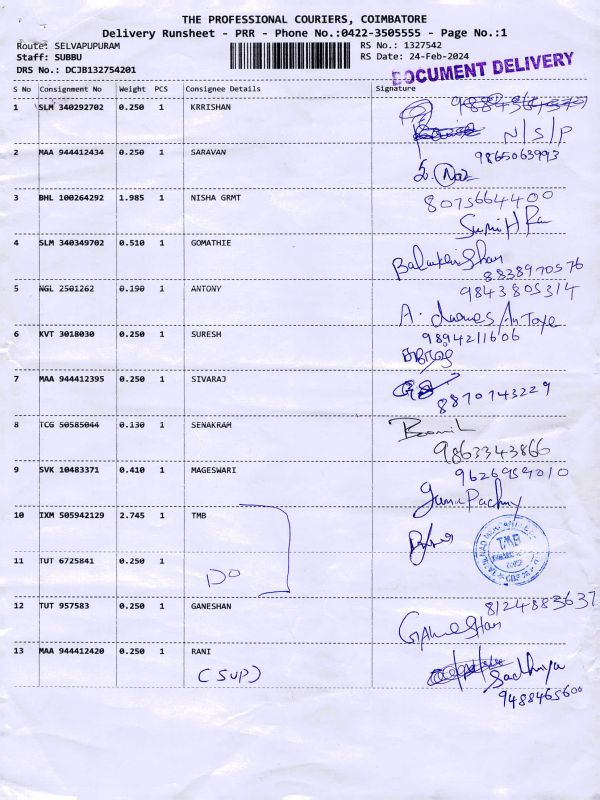 THE PROFESSIONAL COURIERS, COIMBATORE
Delivery Runsheet - PRR - Phone No.:0422-3505555 - Page No.:1
Route: SELVAPUPURAM
RS No.: 1327542
Staff: SUBBU
RS Date: 24-Feb-2024
DRS No.: DCJB132754201
DOCUMENT DELIVERY
S No Consignment No Weight PCS Consignee Details Signature
1 SLM 340292702 0.250 1 KRRISHAN
N/S/P
9865063993
2 MAA 944412434 0.250 1 SARAVAN
3 BHL 100264292 1.985 1 NISHA GRMT
8075664400
4 SLM 340349702 0.510 1 GOMATHIE
8838970576
5 NGL 2501262 0.190 1 ANTONY
9843805314
A.
6 KVT 3018030 0.250 1 SURESH
9894211606
7 MAA 944412395 0.250 1 SIVARAJ
8870743229
8 TCG 50585044 0.130 1 SENAKRAM
9863343866
9 SVK 10483371 0.410 1 MAGESWARI
9626959010
10 IXM 505942129 2.745 1 TMB
TMB
11 TUT 6725841 0.250 1
DO
12 TUT 957583 0.250 1 GANESHAN
8124883637
Ganeshan
13 MAA 944412420 0.250 1 RANI
(SUP)
Sadhiya
9488465600